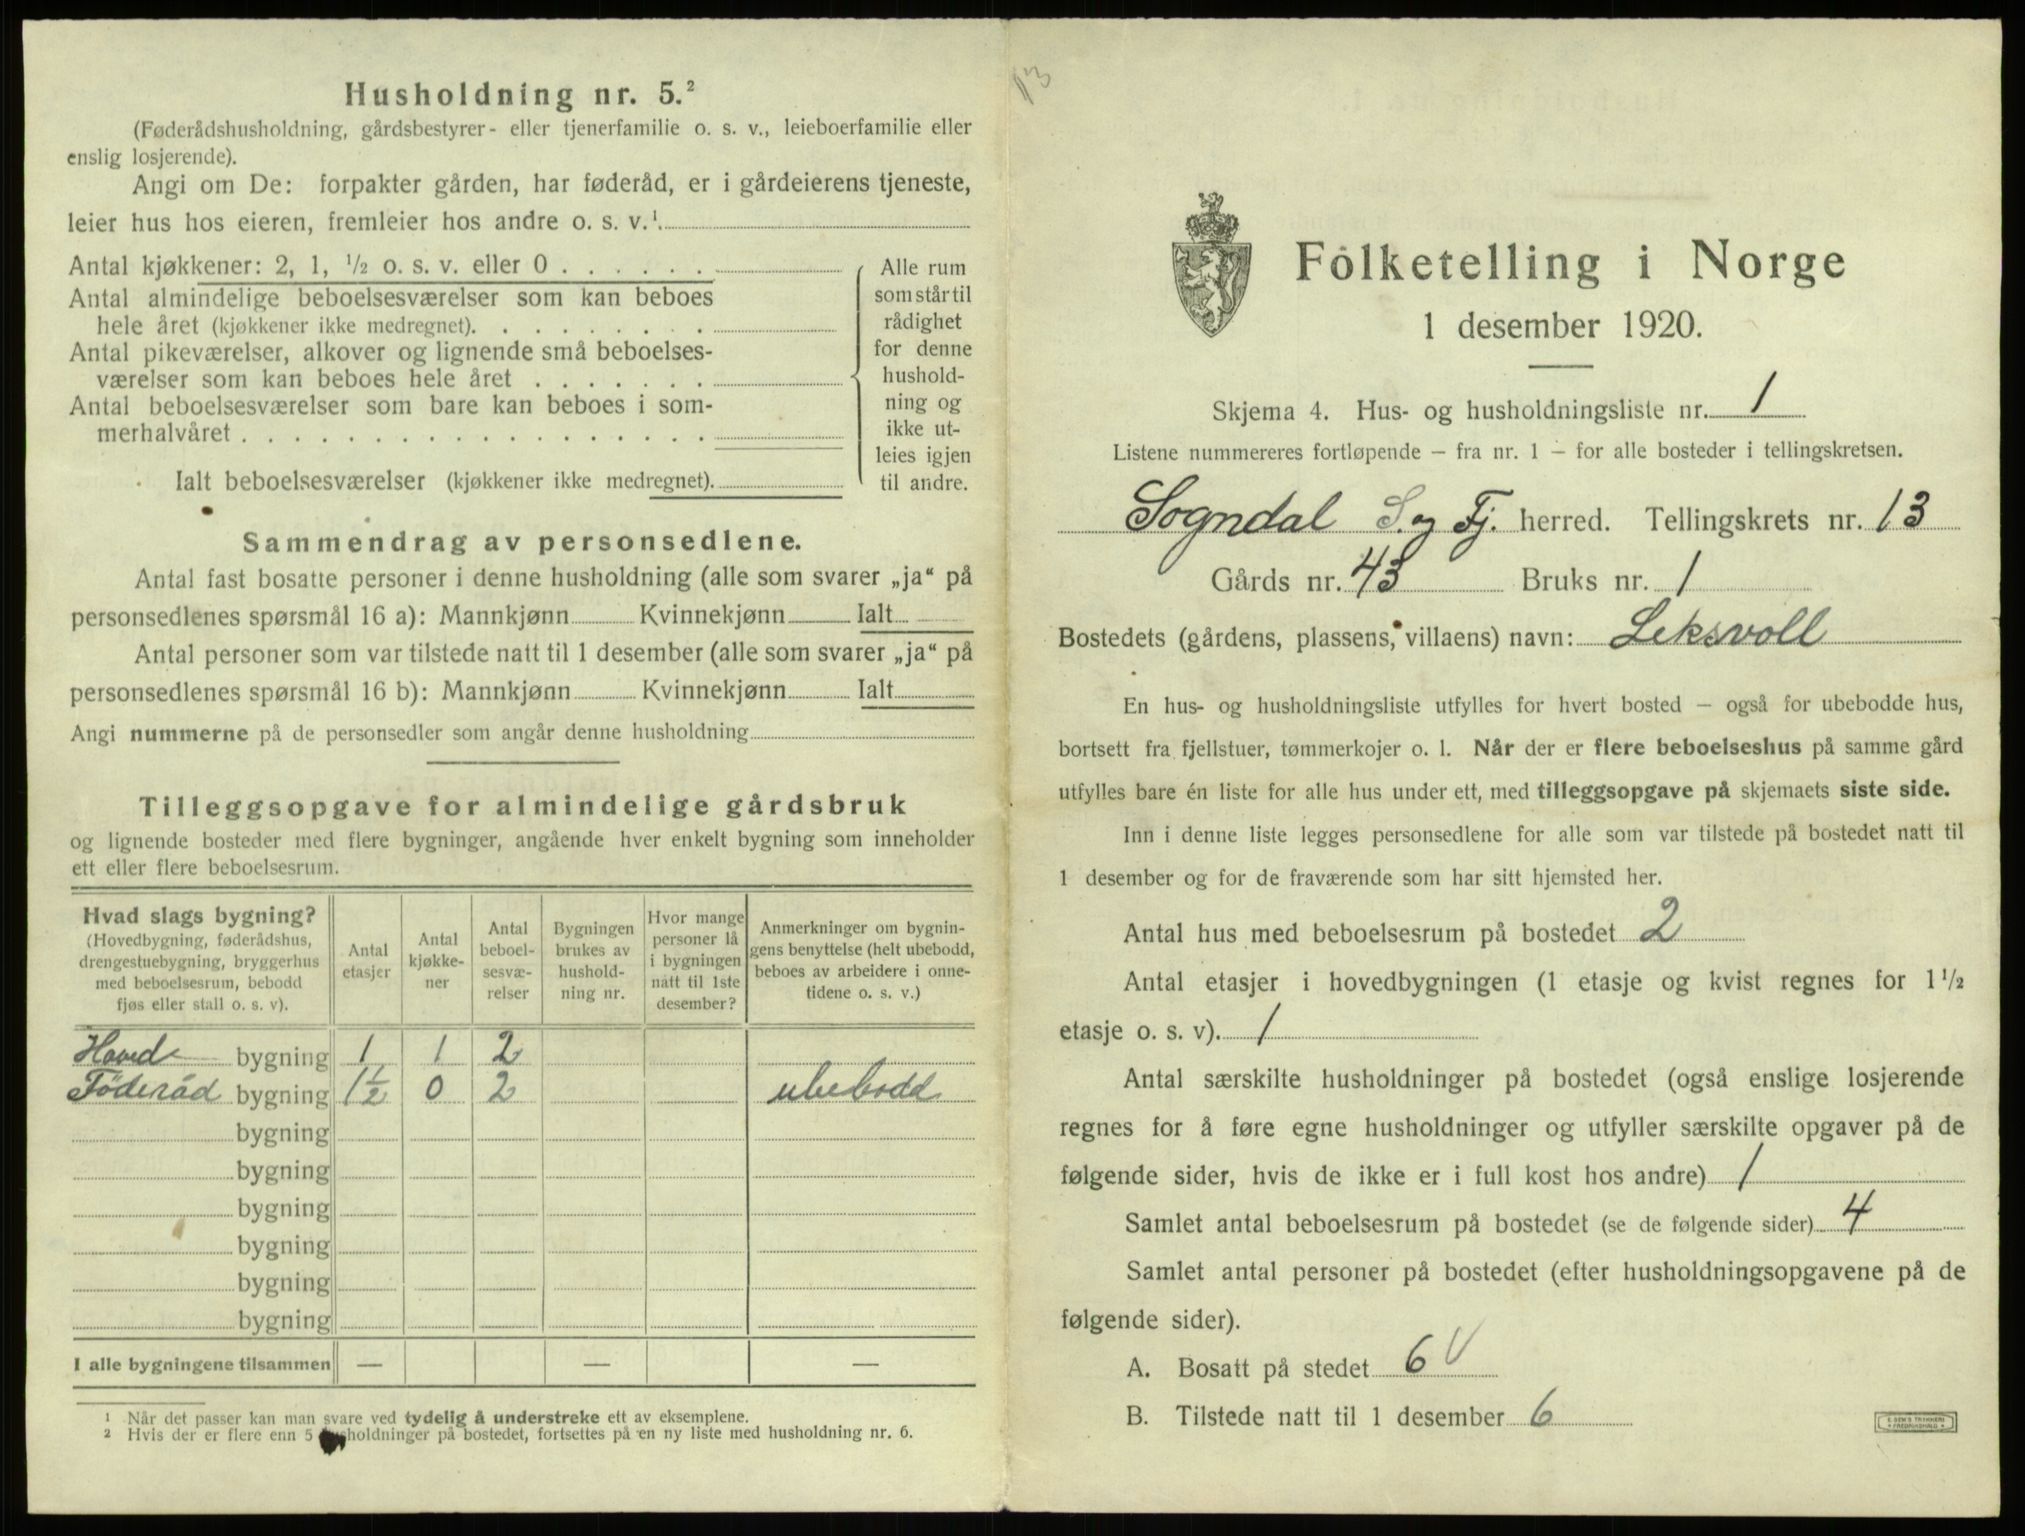 Husholdning nr. 5.²
(Føderådshusholdning, gårdsbestyrer- eller tjenerfamilie o. s. v., leieboerfamilie eller
enslig losjerende).
Angi om De: forpakter gården, har føderåd, er i gårdeierens tjeneste,
leier hus hos eieren, fremleier hos andre o. s. v.¹
Antal kjøkkener: 2, 1, ½ o. s. v. eller 0
Antal almindelige beboelsesværelser som kan beboes
hele året (kjøkkener ikke medregnet).
Antal pikeværelser, alkover og lignende små beboelses-
værelser som kan beboes hele året
Antal beboelsesværelser som bare kan beboes i som-
merhalvåret
Ialt beboelsesværelser (kjøkkener ikke medregnet).
Alle rum
som står til
rådighet
for denne
hushold-
ning og
ikke ut-
leies igjen
til andre.
Sammendrag av personsedlene.
Antal fast bosatte personer i denne husholdning (alle som svarer „ja“ på
personsedlenes spørsmål 16 a): Mannkjønn Kvinnekjønn Ialt
Antal personer som var tilstede natt til 1 desember (alle som svarer „ja“ på
personsedlenes spørsmål 16 b): Mannkjønn Kvinnekjønn Ialt
Angi nummerne på de personsedler som angår denne husholdning
Tilleggsopgave for almindelige gårdsbruk
og lignende bosteder med flere bygninger, angående hver enkelt bygning som inneholder
ett eller flere beboelsesrum.
Hvad slags bygning?
(Hovedbygning, føderådshus,
drengestuebygning, bryggerhus
med beboelsesrum, bebodd
fjøs eller stall o. s. v).
Antal
etasjer
Antal
kjøkke-
ner
Antal
beboel-
sesvæ-
relser
Bygningen
brukes av
hushold-
ning nr.
Hvor mange
personer lå
i bygningen
natt til 1ste
desember?
Anmerkninger om bygnin-
gens benyttelse (helt ubebodd,
beboes av arbeidere i onne-
tidene o. s. v.)
Hoved bygning 1 1 2
Föderåd bygning 1½ 0 2 ubebodd
bygning
bygning
bygning
bygning
bygning
bygning
I alle bygningene tilsammen — — —
¹ Når det passer kan man svare ved tydelig å understreke ett av eksemplene.
² Hvis der er flere enn 5 husholdninger på bostedet, fortsettes på en ny liste med husholdning nr. 6.
13
Folketelling i Norge
1 desember 1920.
Skjema 4. Hus- og husholdningsliste nr. 1
Listene nummereres fortløpende – fra nr. 1 – for alle bosteder i tellingskretsen.
Sogndal S. og Fj. herred. Tellingskrets nr. 13
Gårds nr. 43 Bruks nr. 1
Bostedets (gårdens, plassens, villaens) navn: Leksvoll
En hus- og husholdningsliste utfylles for hvert bosted – også for ubebodde hus,
bortsett fra fjellstuer, tømmerkojer o. l. Når der er flere beboelseshus på samme gård
utfylles bare én liste for alle hus under ett, med tilleggsopgave på skjemaets siste side.
Inn i denne liste legges personsedlene for alle som var tilstede på bostedet natt til
1 desember og for de fraværende som har sitt hjemsted her.
Antal hus med beboelsesrum på bostedet 2
Antal etasjer i hovedbygningen (1 etasje og kvist regnes for 1½
etasje o. s. v). 1
Antal særskilte husholdninger på bostedet (også enslige losjerende
regnes for å føre egne husholdninger og utfyller særskilte opgaver på de
følgende sider, hvis de ikke er i full kost hos andre) 1
Samlet antal beboelsesrum på bostedet (se de følgende sider) 4
Samlet antal personer på bostedet (efter husholdningsopgavene på de
følgende sider).
A. Bosatt på stedet 6 V
B. Tilstede natt til 1 desember 6